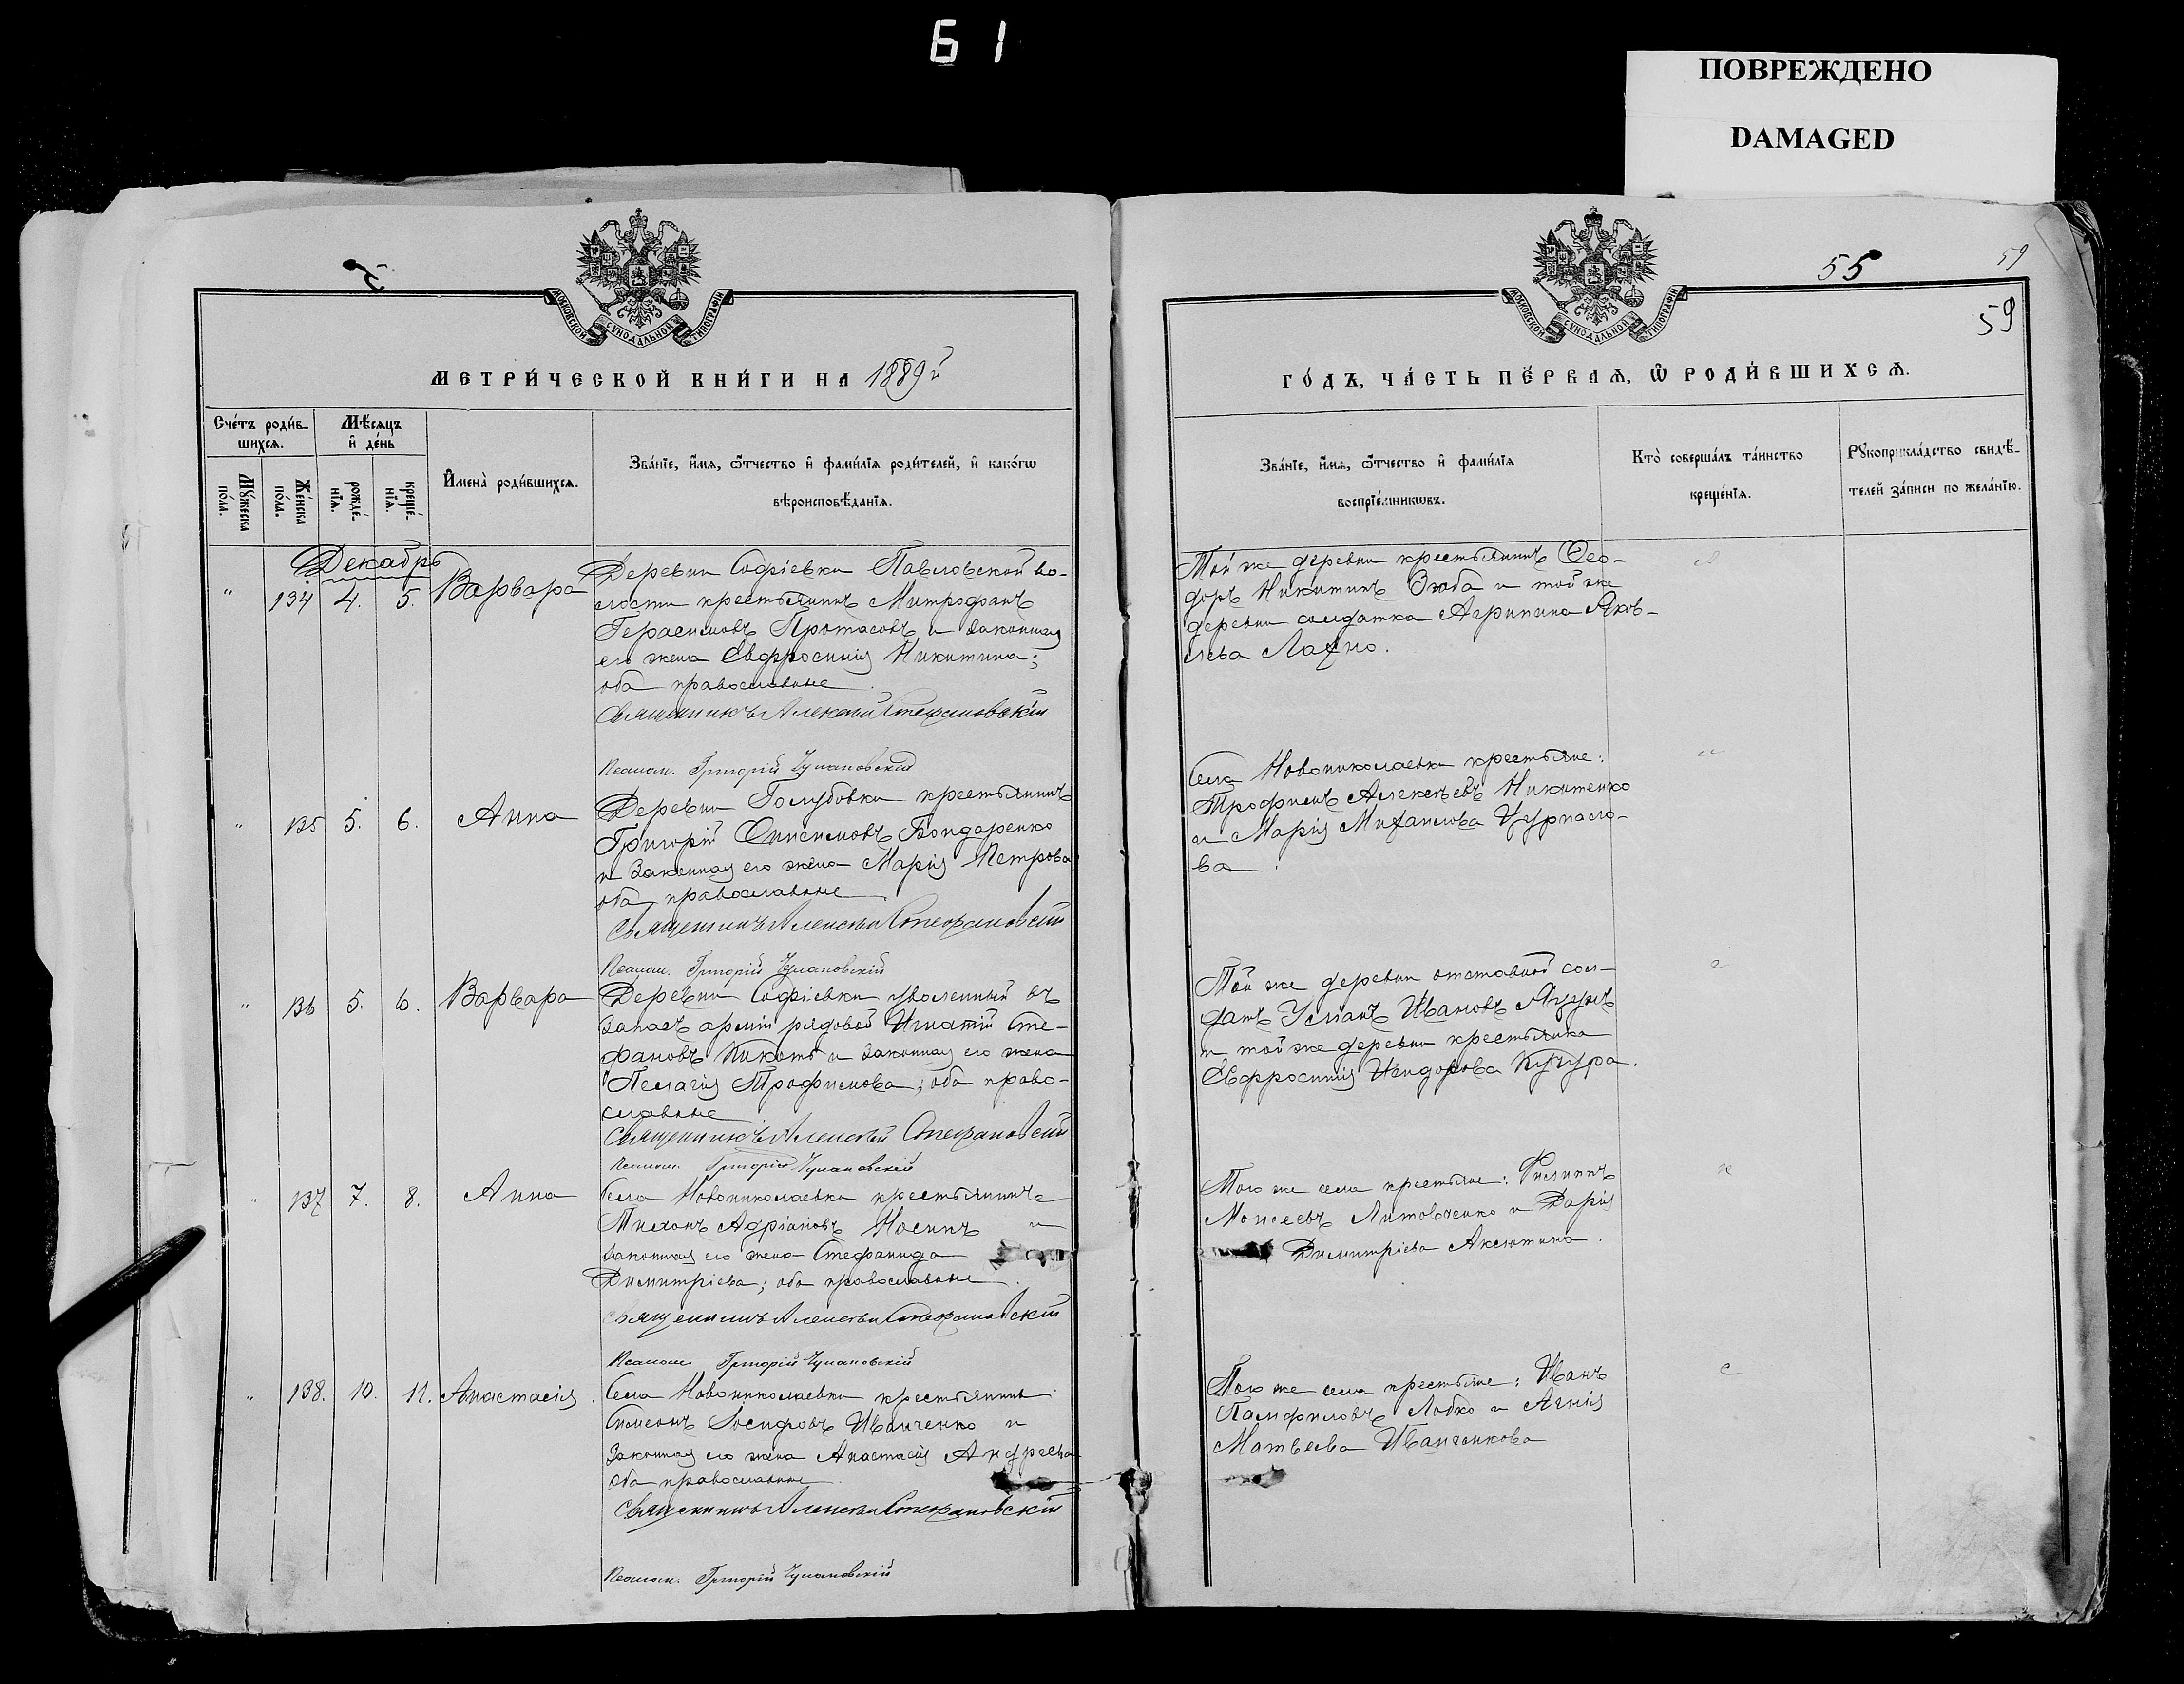 61
ПОВРЕЖДЕНО
DAMAGED
55
59
59
МОСКОВСКОЙ СУНОДАЛЬНОЙ ТИПОГРАФІИ
МОСКОВСКОЙ СУНОДАЛЬНОЙ ТИПОГРАФІИ
МЕТРИ́ЧЕСКОЙ КНИ́ГИ НА 1889й
ГО́ДЪ, ЧА́СТЬ ПЕ́РВАѦ, Ѽ РОДИ́ВШИХСѦ.
Сче́тъ роди́в-
шихсѧ.
Мꙋ́жеска по́ла.
Же́нска по́ла.
Мѣ́сѧцъ
и҆ де́нь
рожде́-
нїѧ.
креще́-
нїѧ.
И҆мена̀ роди́вшихсѧ.
Зва́нїе, и҆́мѧ, ѻ҆́тчество и҆ фами́лїѧ роди́телей, и҆ како́гѡ
вѣроисповѣ́данїѧ.
Зва́нїе, и҆́мѧ, ѻ҆́тчество и҆ фами́лїѧ
воспрїе́мникѡвъ.
Кто̀ соверша́лъ та́инство
креще́нїѧ.
Рꙋкоприкла́дство свидѣ́-
телей за́писи по жела́нїю.
Декабрь
" 134 4. 5. Варвара
Деревни Софіевки Павловской во-
лости крестьянинъ Митрофанъ
Герасимовъ Протасовъ и законная
его жена Евфросинія Никитина;
оба православные.
Священникъ Алексій Стефановскій
Псалом. Григорій Чумановскій
Той же деревни крестьянинъ Ѳео-
доръ Никитинъ Зюба и той же
деревни солдатка Агрипина Яков-
лева Лахно.
" 135 5. 6. Анна
Деревни Голубовки крестьянинъ
Григорій Онисимовъ Бондаренко
и законная его жена Марія Петрова
оба православные
Священникъ Алексій Стефановскій
Псалом. Григорій Чумановскій
Села Новониколаевки крестьяне:
Трофимъ Алексѣевъ Никитенко
и Марія Михаилова
ва
" 136 5. 6. Варвара
Деревни Софіевки уволенный въ
запасъ арміи рядовой Игнатій Сте-
фановъ Кикоть и законная его жена
Пелагія Трофимова; оба право-
славные
Священникъ Алексѣй Стефановскій
Псалом. Григорій Чумановскій
Той же деревни отставной сол-
датъ Ивановъ
и той же деревни крестьянка
Евфросинія Исидорова Кучура.
" 137 7. 8. Анна
Села Новониколаевки крестьянинъ
Тихонъ Адріановъ Носинъ и
законная его жена Стефанида
Димитріева; оба православные.
Священникъ Алексѣй Стефановскій
Псалом. Григорій Чумановскій
Того же села крестьяне: Филиппъ
Моисеевъ Литовченко и Дарія
Димитріева Аксютина.
" 138. 10. 11. Анастасія.
Села Новониколаевки крестьянинъ
Симеонъ Іосифовъ Иванченко и
законная его жена Анастасія Андреева
оба православные.
Священникъ Алексѣй Стефановскій
Псалом. Григорій Чумановскій
Того же села крестьяне: Иванъ
Памфиловъ Лобко и Агнія
Матвѣева Иванченкова